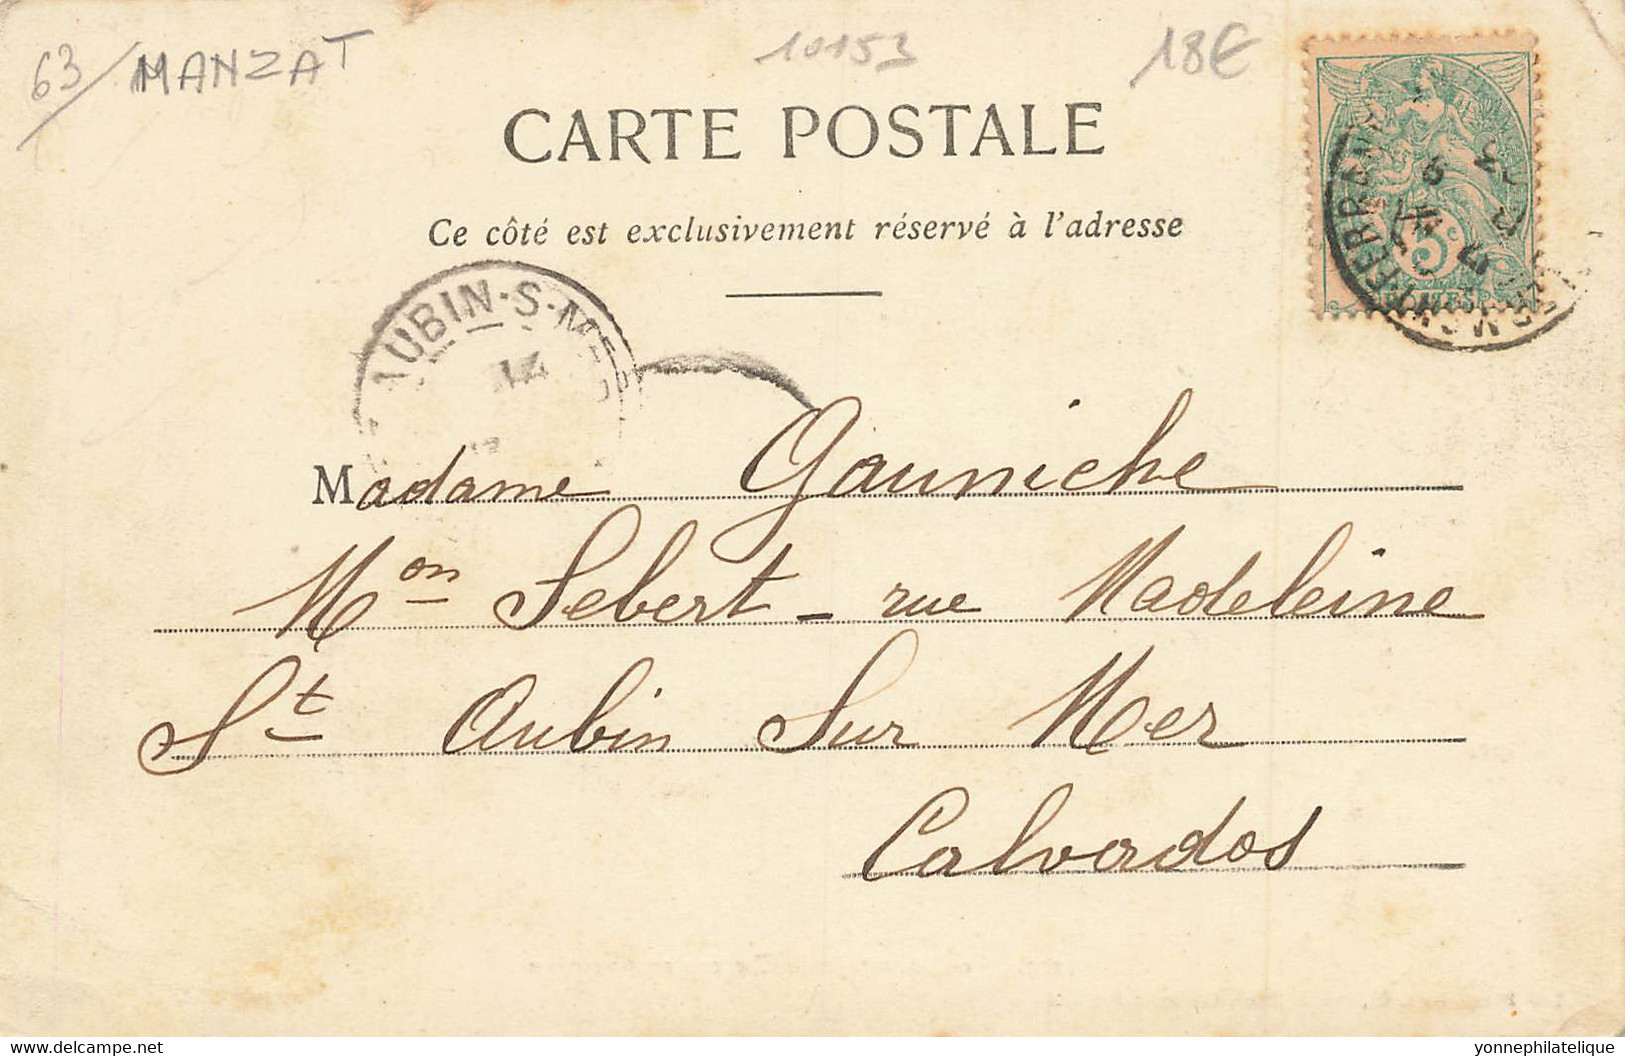 63/ MANZAT
10153
18€
CARTE POSTALE
Ce côté est exclusivement réservé à l'adresse
AUBIN-S-MER
5c
Madame Gauniche
Mon Sebert - rue Madeleine
St Aubin Sur Mer
Calvados
Delcampe.net
yonnephilatelique